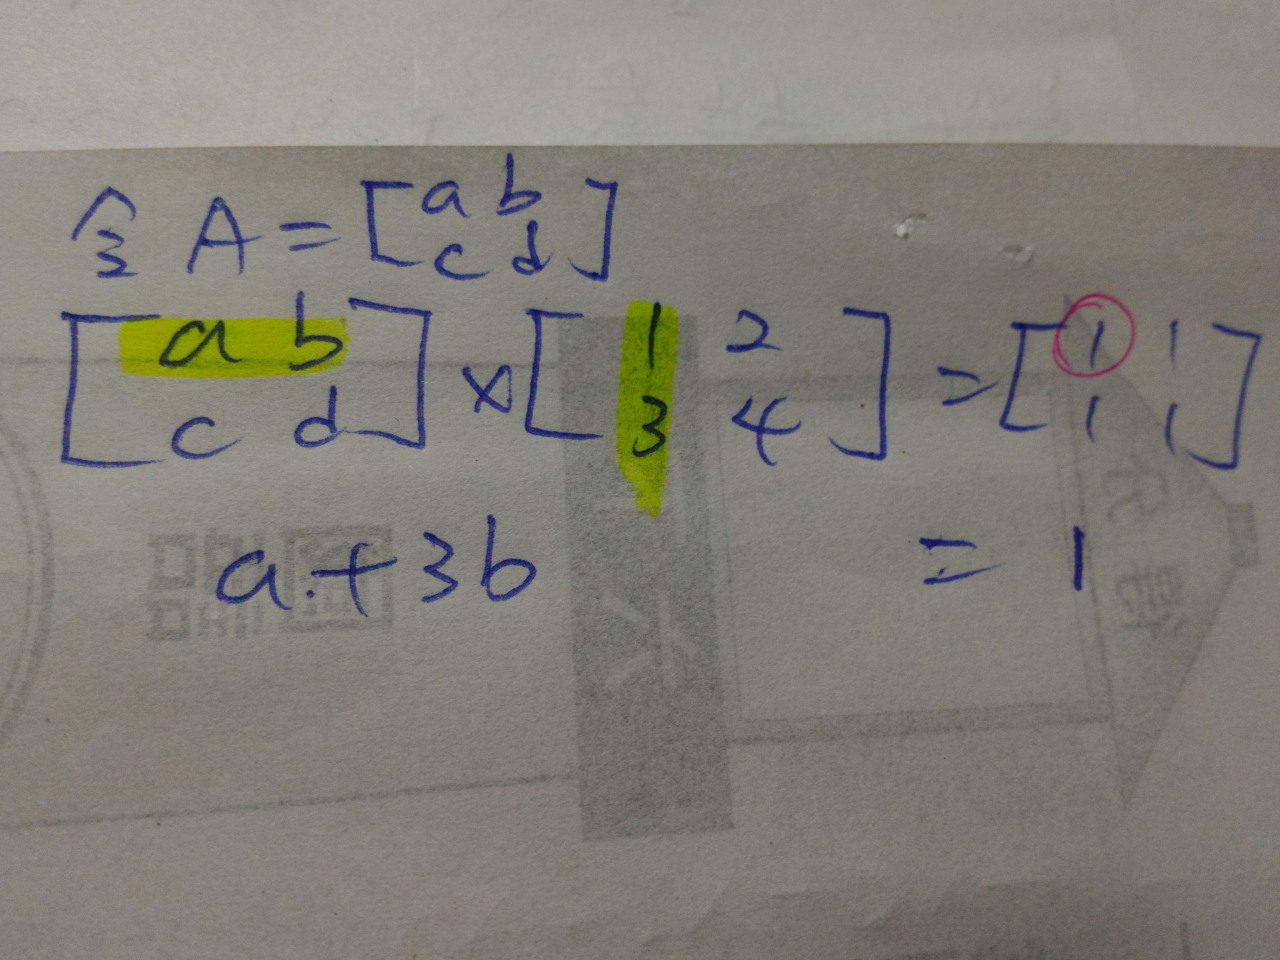 令 A = [a b
c d]
[a b
c d] × [1 2
3 4] = [1 1
1 1]
a + 3b = 1